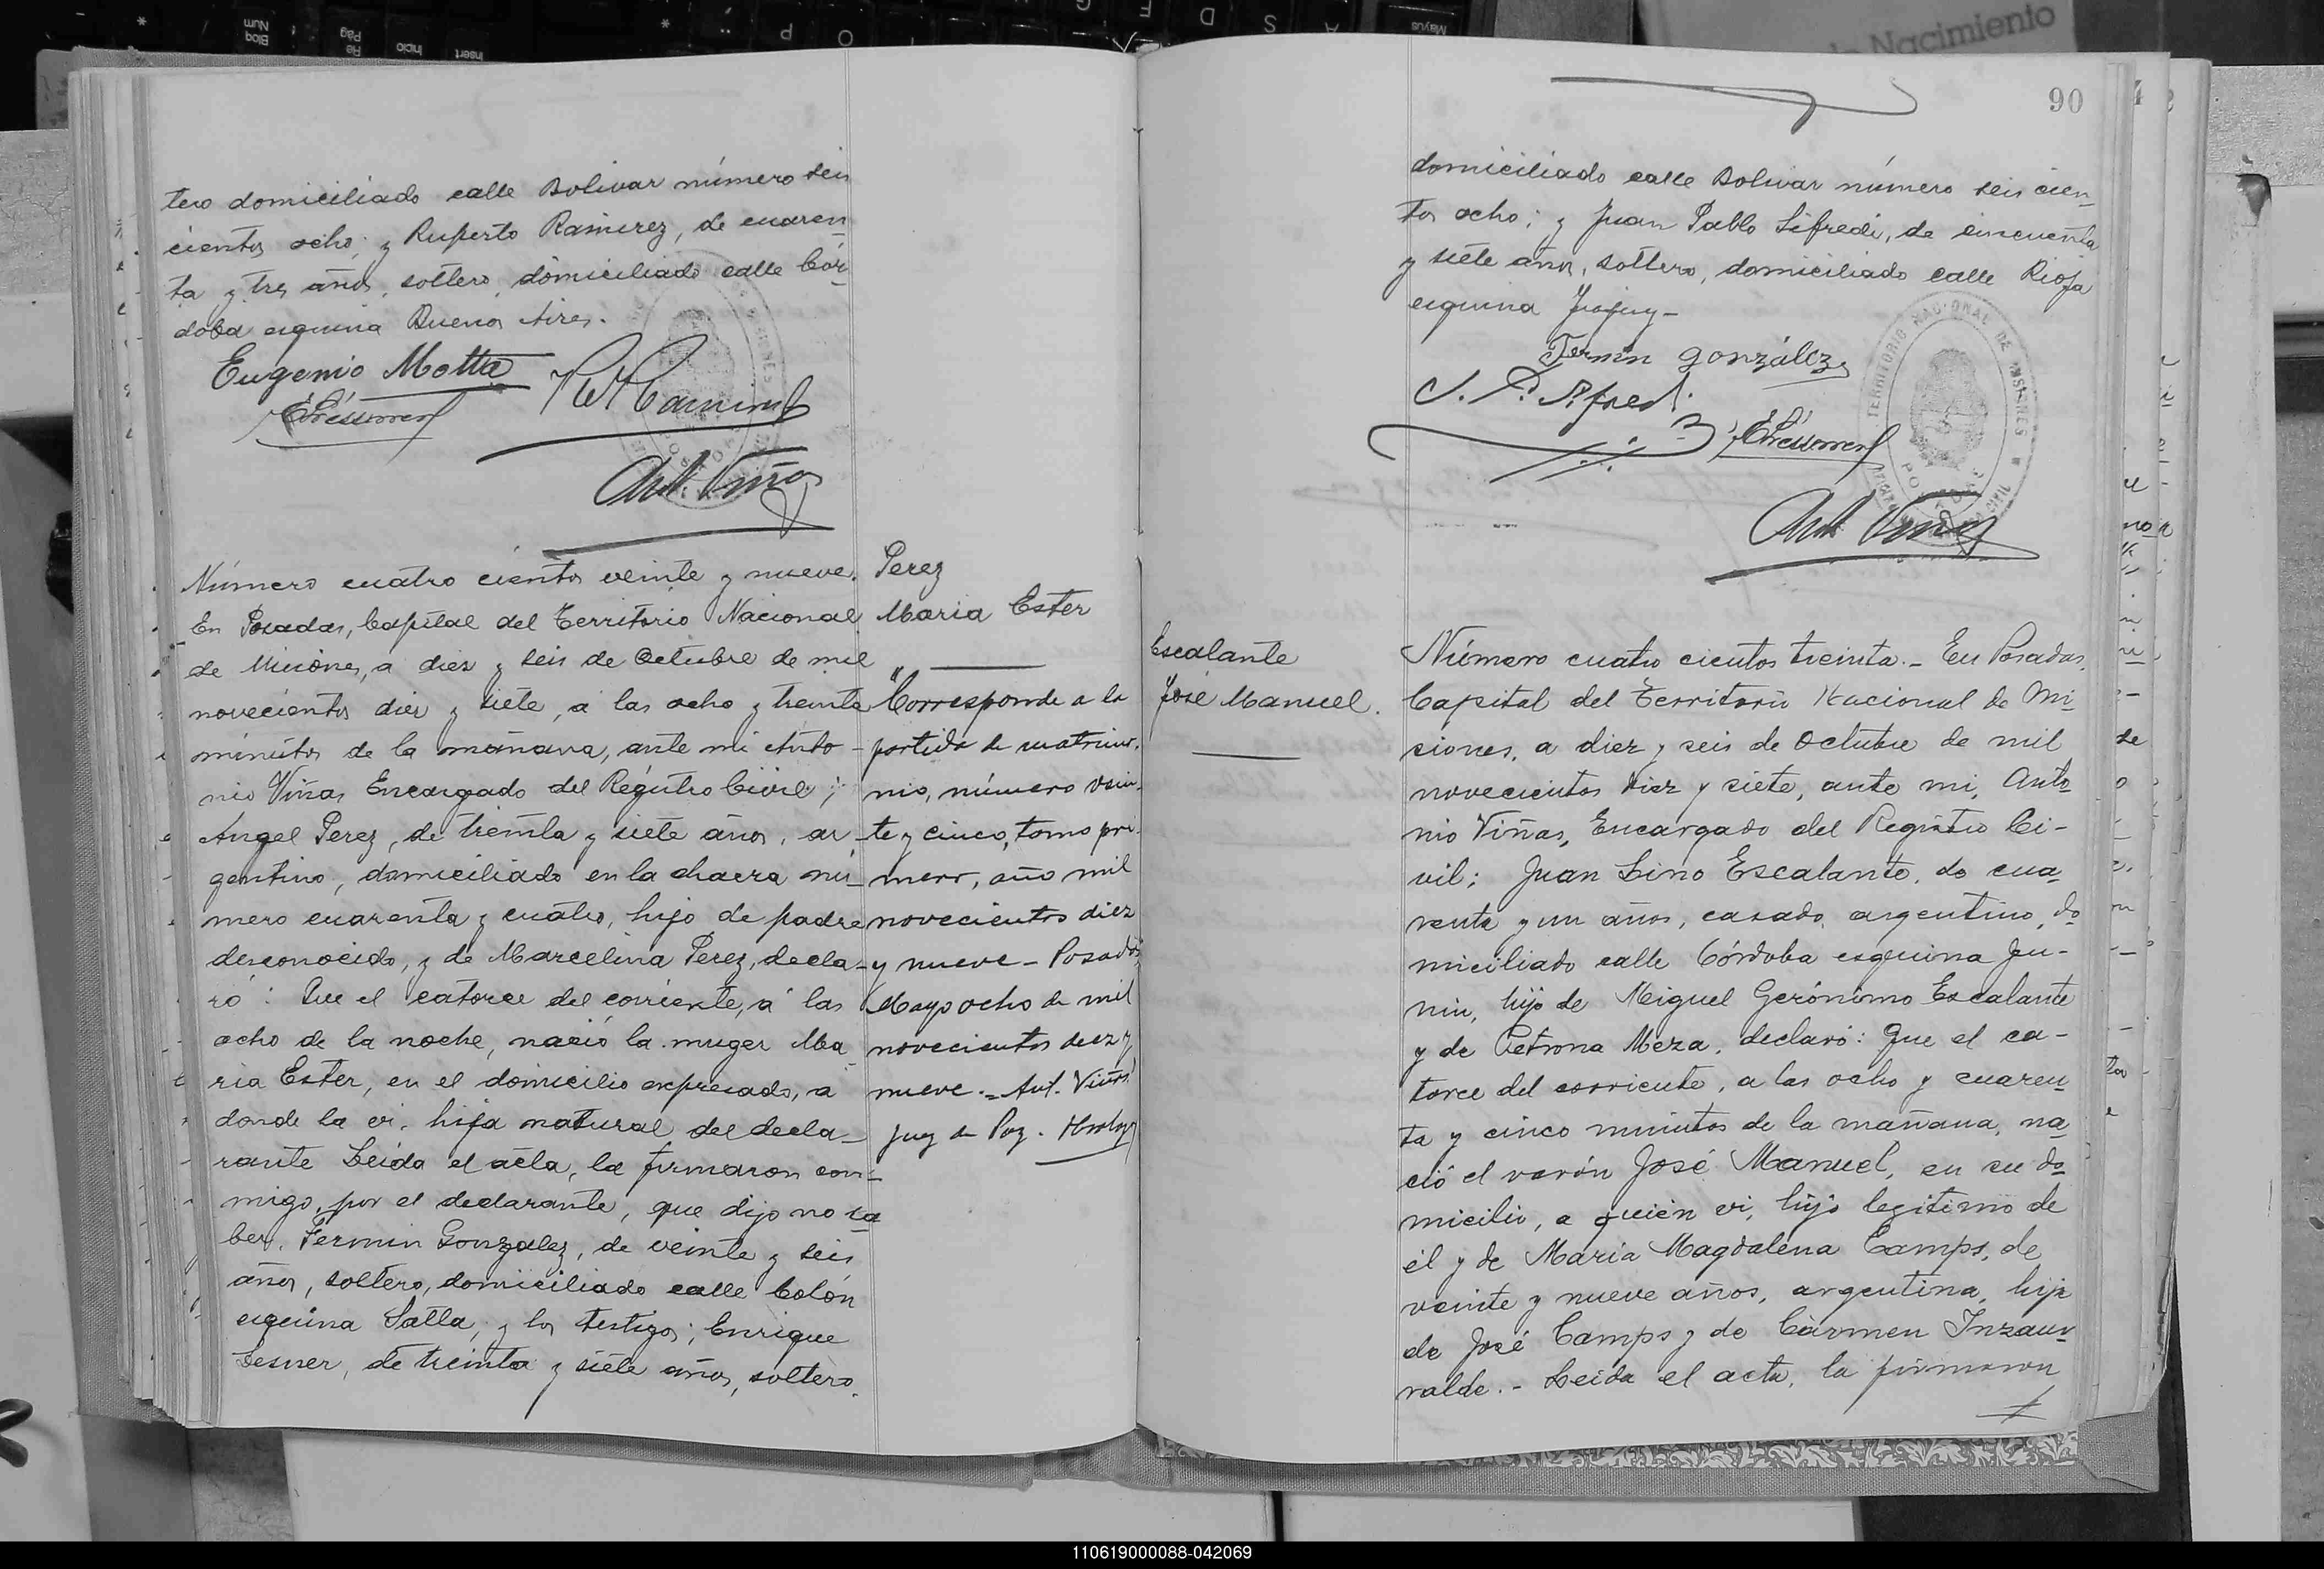 tero domiciliado calle Bolivar número seis
cientos ocho; y Ruperto Ramirez, de cuaren
ta y tres años, soltero, domiciliado calle Cór-
doba esquina Buenos Aires.
Eugenio Motta
Ant. Viñas
Número cuatro cientos veinte y nueve.
En Posadas, Capital del Territorio Nacional
de Misiones, a diez y seis de Octubre de mil
novecientos diez y siete, a las ocho y treinta
minutos de la mañana, ante mi Anto-
nio Viñas Encargado del Registro Civil;
Angel Perez, de treinta y siete años, ar-
gentino, domiciliado en la chacra nú-
mero cuarenta y cuatro, hijo de padre
desconocido, y de Marcelina Perez, decla-
ró: Que el catorce del corriente, á las
ocho de la noche, nació la muger Ma
ria Ester, en el domicilio expresado, a
donde la vi, hija natural del decla-
rante Leida el acta, la firmaron con-
migo, por el declarante, que dijo no sa
ber, Fermin Gonzalez, de veinte y seis
años, soltero, domiciliado calle Colón
esquina Salta; y los testigos; Enrique
Lesner, de treinta y siete años, soltero,
Perez
Maria Ester
"Corresponde a la
partida de matrimo-
nio, número vein-
te y cinco, tomo pri-
mero, año mil
novecientos diez
y nueve - Posadas,
Mayo ocho de mil
novecientos diez y
nueve.- Ant. Viñas
Juez de Paz.
90
domiciliado calle Bolivar número seis cien-
tos ocho; y Juan Pablo Sifredi, de cincuenta
y siete años, soltero, domiciliado calle Rioja
esquina Jujuy-
Fermin González
J. P. Sifredi
Ant. Viñas
TERRITORIO NACIONAL DE MISIONES
Escalante
José Manuel.
Número cuatro cientos treinta.- En Posadas,
Capital del Territorio Nacional de Mi-
siones, a diez y seis de Octubre de mil
novecientos diez y siete, ante mi, Anto-
nio Viñas, Encargado del Registro Ci-
vil; Juan Lino Escalante, de cua-
renta y un años, casado, argentino, do
miciliado calle Córdoba esquina Ju-
nin, hijo de Miguel Gerónimo Escalante
y de Petrona Meza, declaró: Que el ca-
torce del corriente, a las ocho y cuaren
ta y cinco minutos de la mañana, na
ció el varón José Manuel, en su do
micilio, a quien vi, hijo legitimo de
él y de Maria Magdalena Camps, de
veinte y nueve años, argentina, hija
de José Camps y de Cármen Inzaur
ralde.- Leida el acta, la firmaron
110619000088-042069